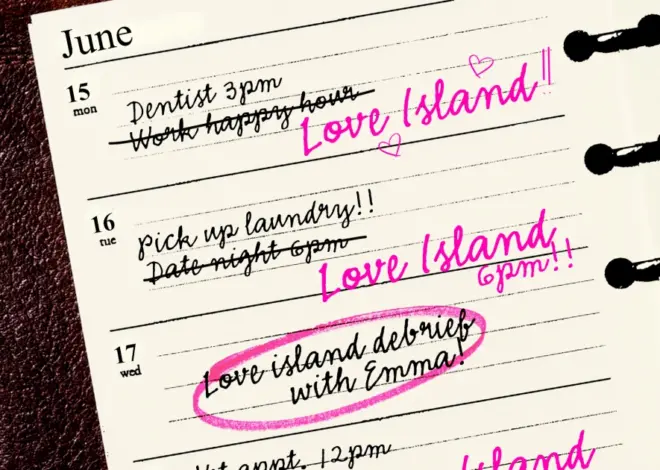 June
15
mon
Dentist 3pm
Work happy hour
Love Island!!
16
tue
Pick up laundry!!
Date night 6pm
Love Island
6pm!!
17
wed
Love island debrief
with Emma!
Vet appt. 12pm
Island